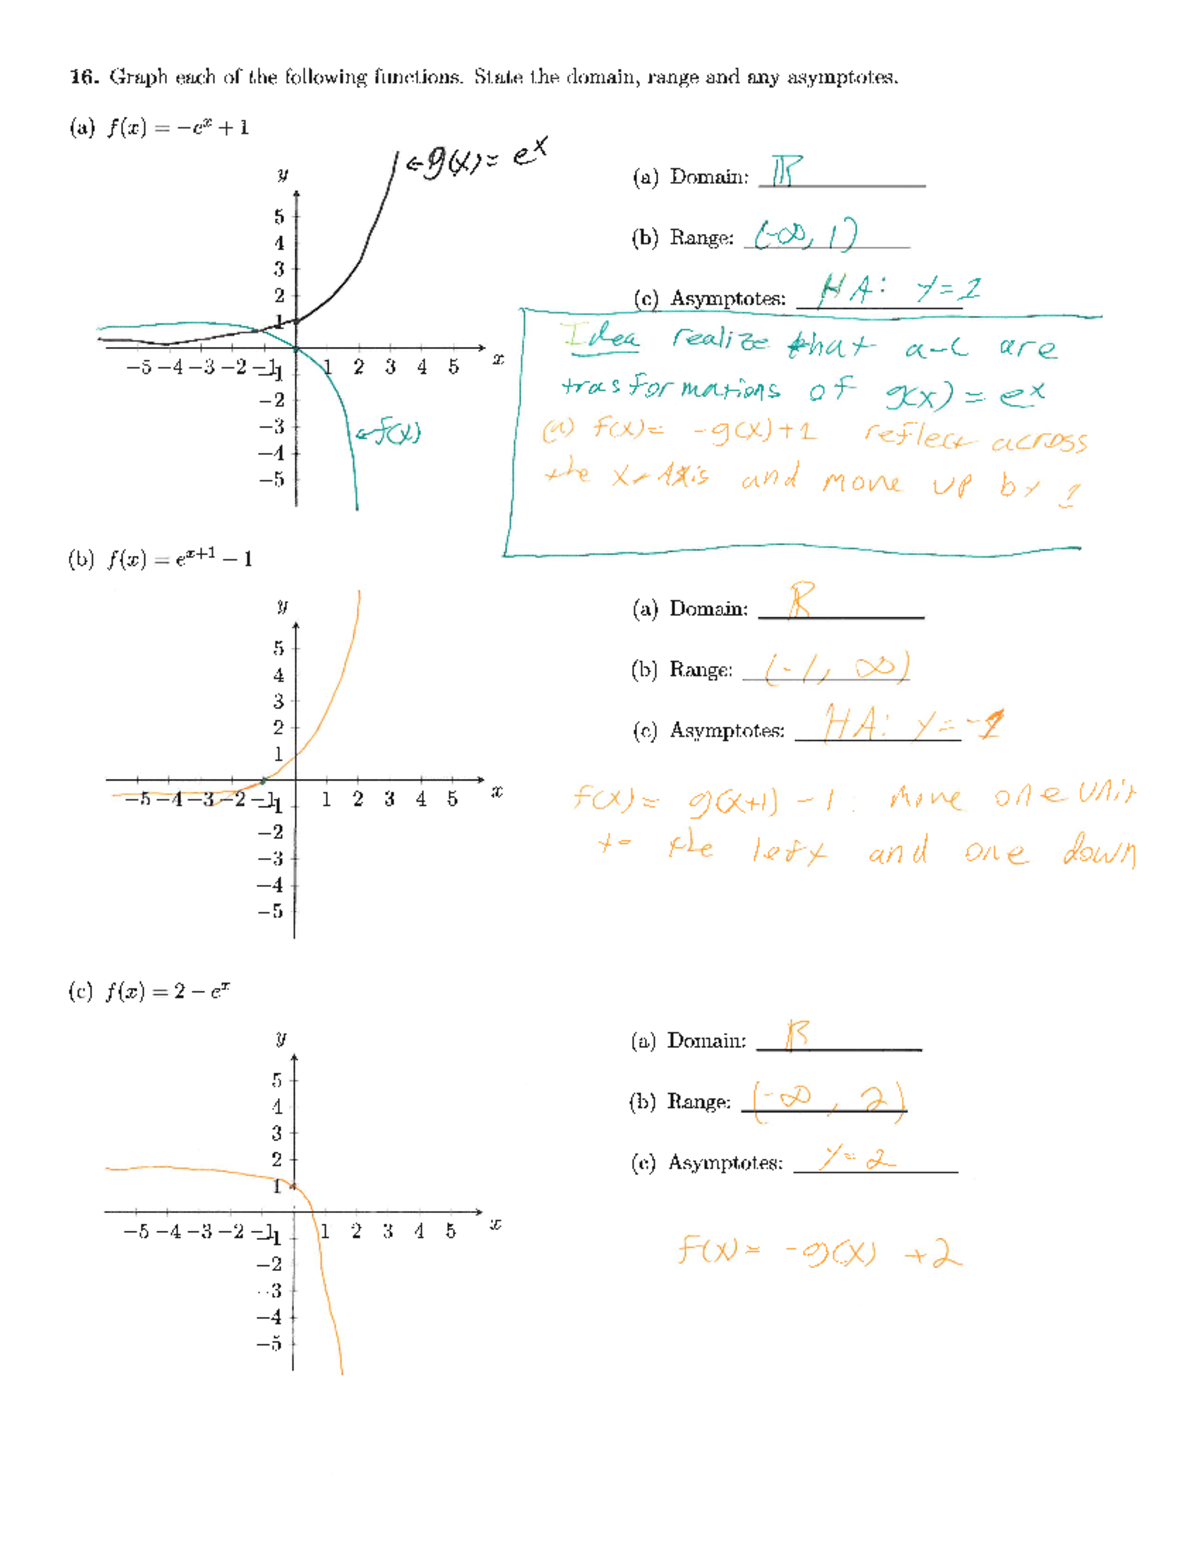 16. Graph each of the following functions. State the domain, range and any asymptotes.
(a) f(x) = −eˣ + 1
←g(x)= eˣ
y
5
4
3
2
1
−5 −4 −3 −2 −1
1 2 3 4 5
x
−1
−2
−3
−4
−5
←f(x)
(a) Domain: ℝ
(b) Range: (-∞, 1)
(c) Asymptotes: HA: y=1
Idea realize that a-c are
trasformations of g(x) = eˣ
(a) f(x)= -g(x)+1 reflect across
the x-Axis and move up by 1
(b) f(x) = eˣ⁺¹ − 1
y
5
4
3
2
1
−5 −4 −3 −2 −1
1 2 3 4 5
x
−1
−2
−3
−4
−5
(a) Domain: ℝ
(b) Range: (-1, ∞)
(c) Asymptotes: HA: y=-1
f(x)= g(x+1) -1. Move one unit
to the left and one down
(c) f(x) = 2 − eˣ
y
5
4
3
2
1
−5 −4 −3 −2 −1
1 2 3 4 5
x
−1
−2
−3
−4
−5
(a) Domain: ℝ
(b) Range: (-∞, 2)
(c) Asymptotes: y=2
f(x)= -g(x) +2